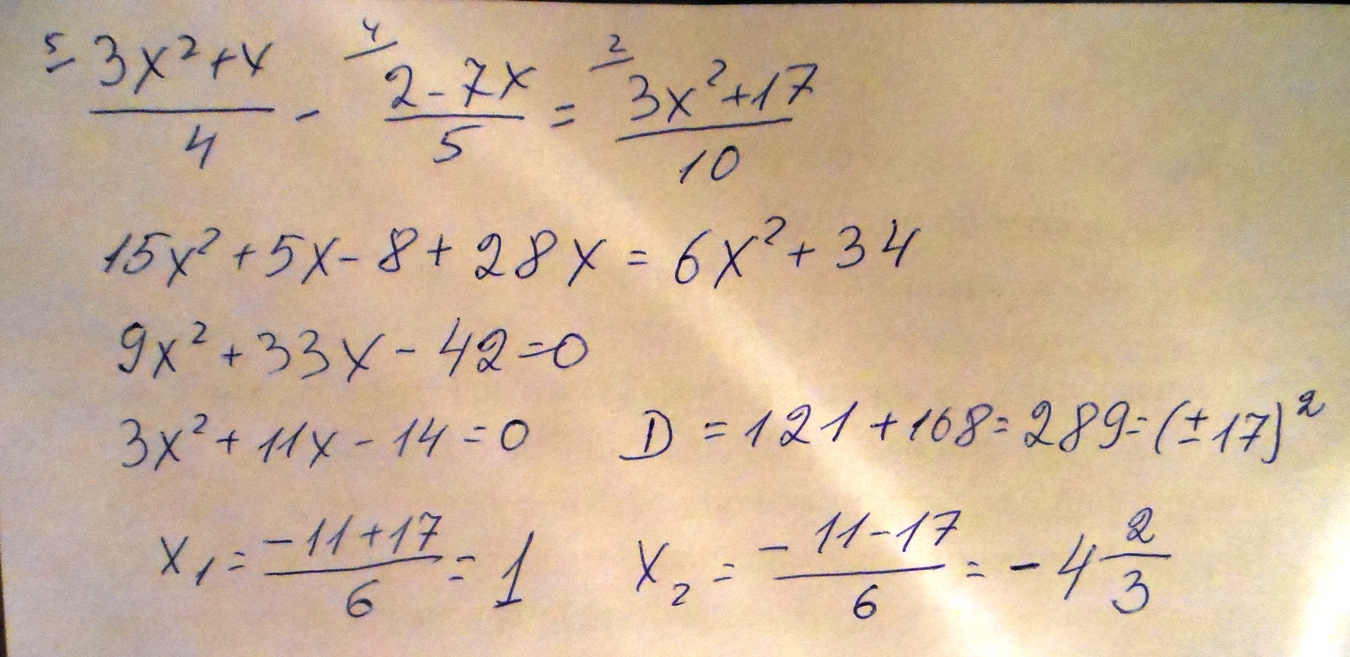 5 (3x²+x)/4 - 4 (2-7x)/5 = 2 (3x²+17)/10
15x²+5x-8+28x=6x²+34
9x²+33x-42=0
3x²+11x-14=0 D=121+168=289=(±17)²
x₁=(-11+17)/6=1 x₂=(-11-17)/6=-4 2/3